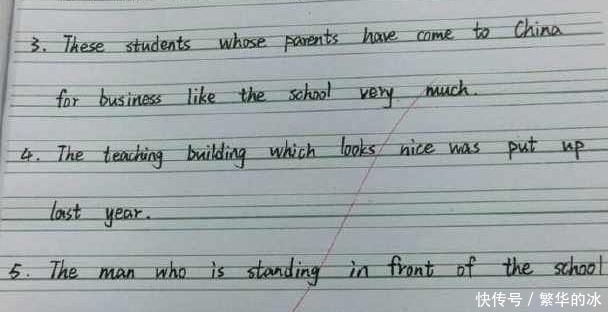 3. These students whose parents have come to China
for business like the school very much.
4. The teaching building which looks nice was put up
last year.
5. The man who is standing in front of the school
快传号 / 繁华的冰